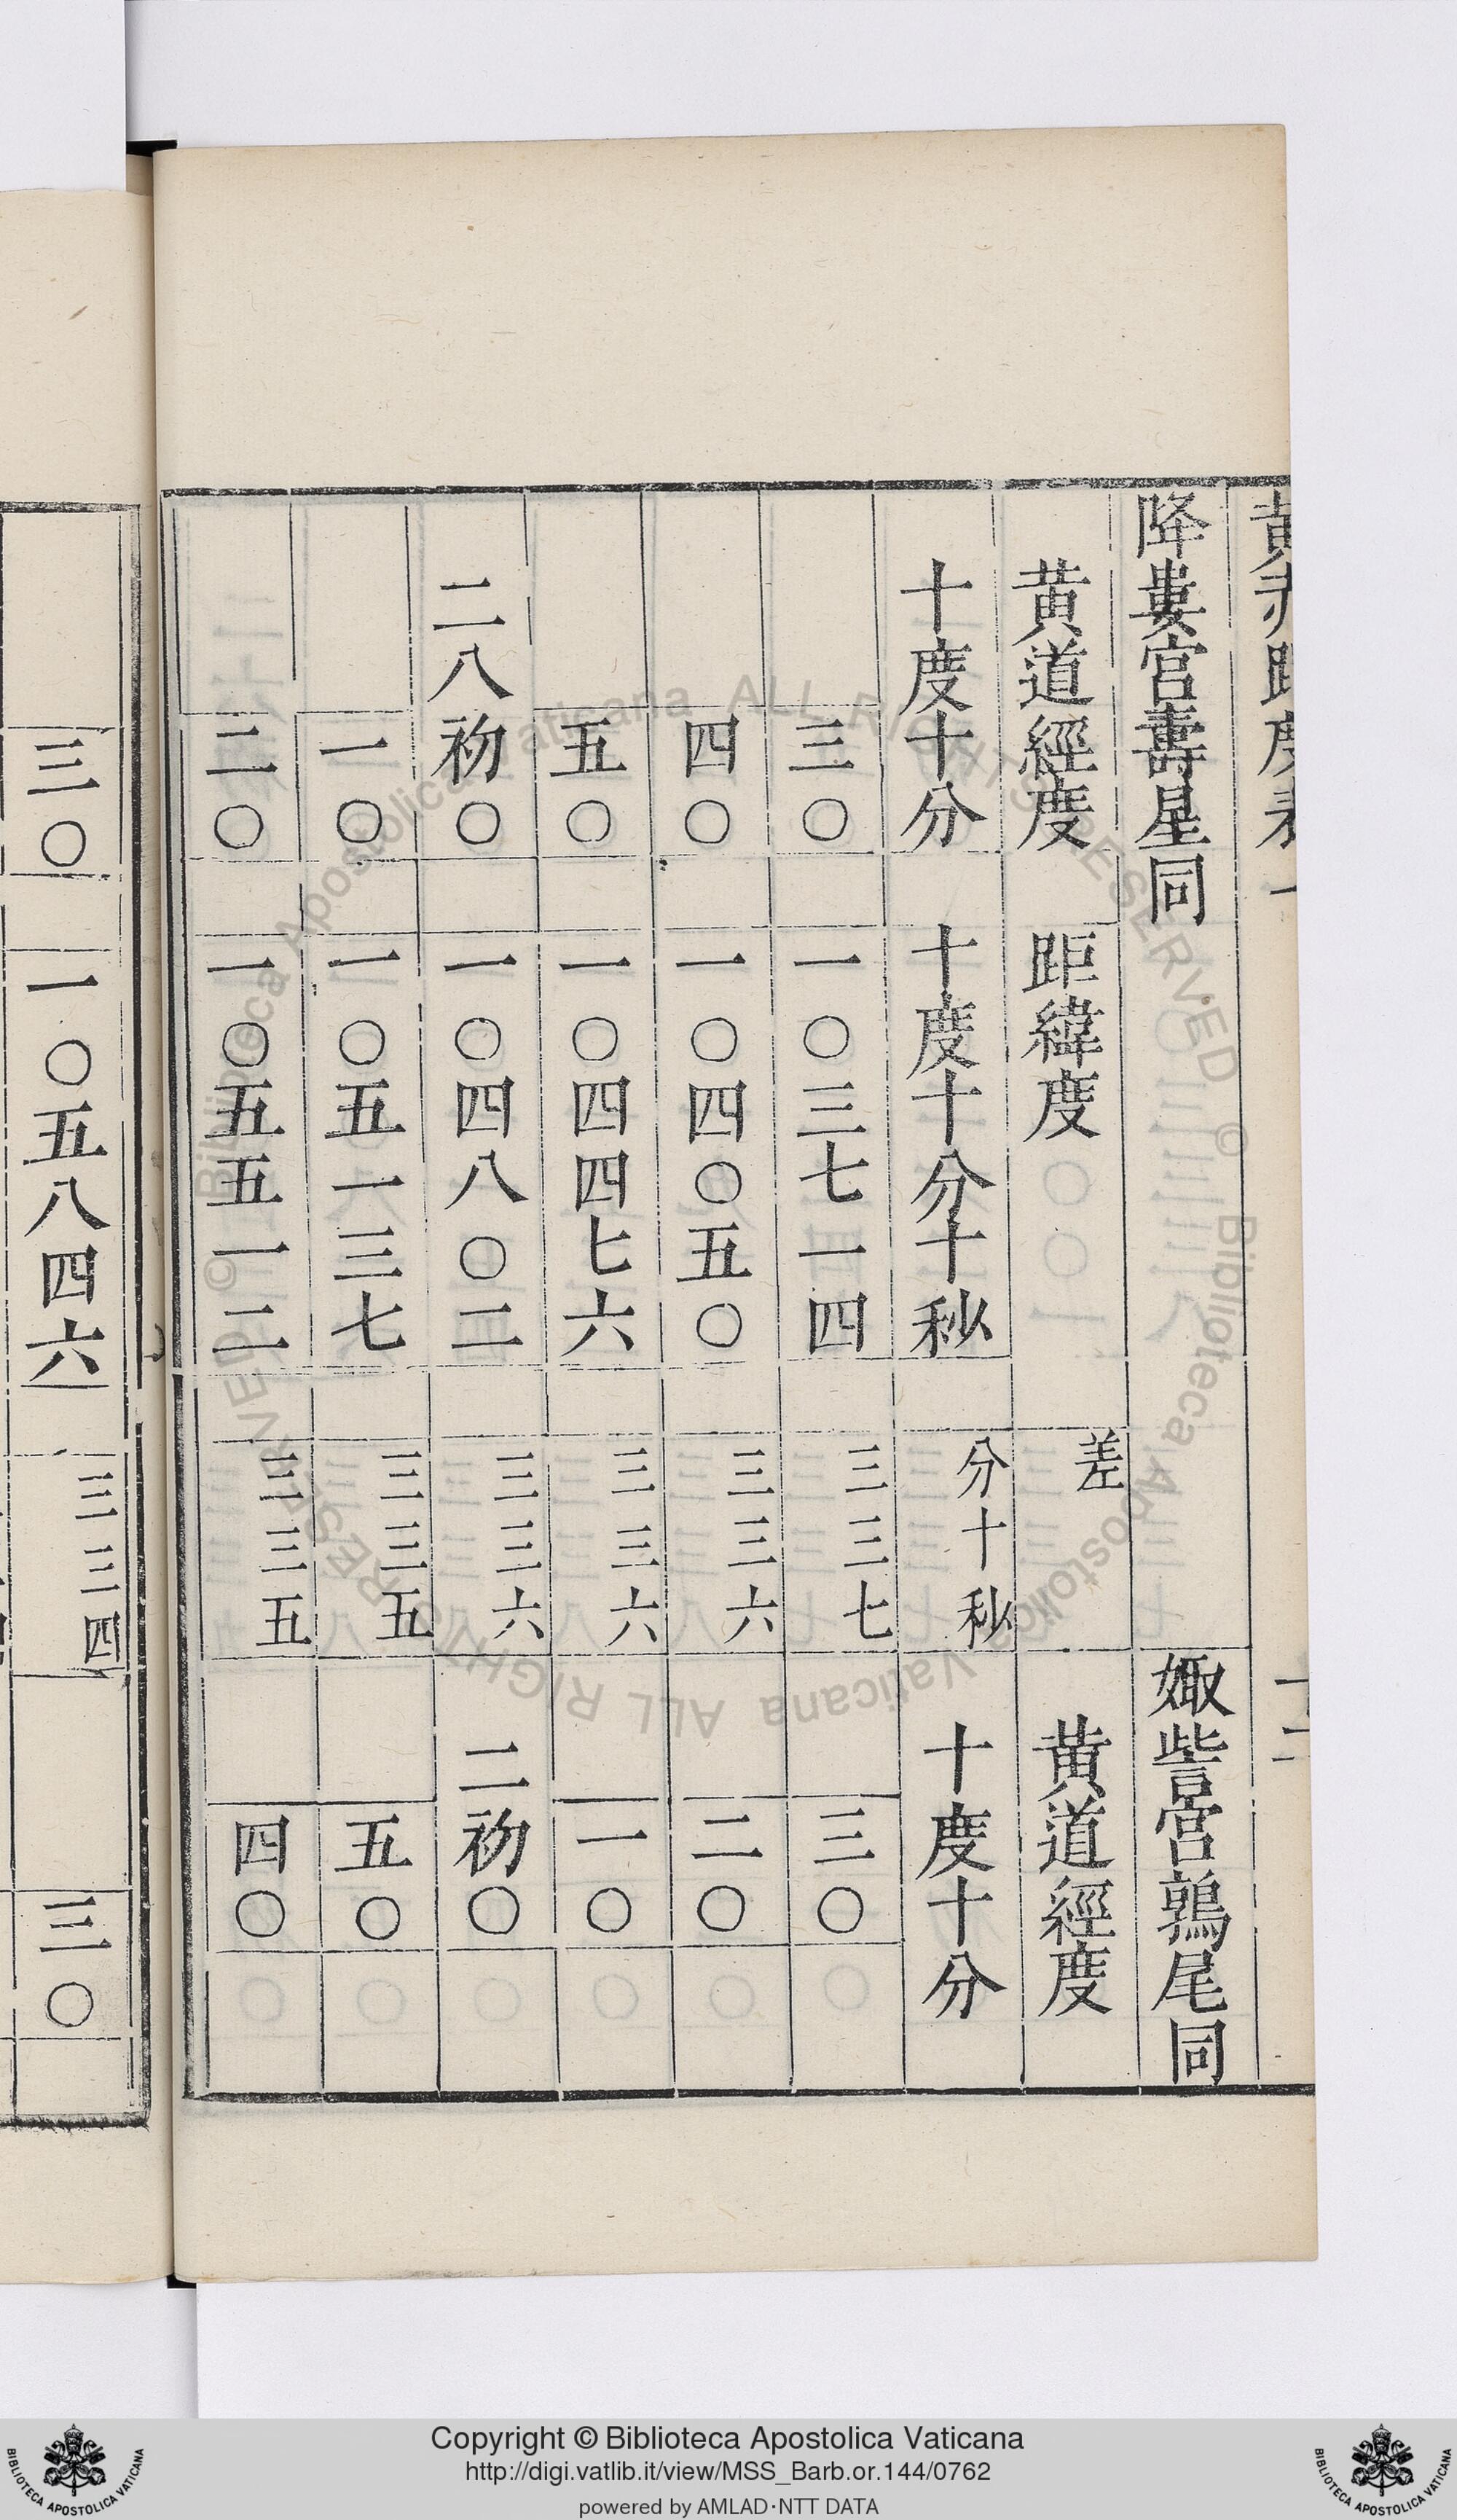 黃赤距度表
降婁宮壽星同 娵訾宮鶉尾同
黃道經度 距緯度 差 黃道經度
十度十分 十度十分十秒 分十秒 十度十分
三〇 一〇三七一四 三三七 三〇
四〇 一〇四〇五〇 三三六 二〇
五〇 一〇四四七六 三三六 一〇
二八初〇 一〇四八〇二 三三六 二初〇
一〇 一〇五一三七 三三五 五〇
二〇 一〇五五一二 三三五 四〇
三〇 一〇五八四六 三三四 三〇
© Biblioteca Apostolica Vaticana ALL RIGHTS RESERVED
© Biblioteca Apostolica Vaticana ALL RIGHTS RESERVED
Copyright © Biblioteca Apostolica Vaticana
http://digi.vatlib.it/view/MSS_Barb.or.144/0762
powered by AMLAD·NTT DATA
BIBLIOTECA APOSTOLICA VATICANA
BIBLIOTECA APOSTOLICA VATICANA